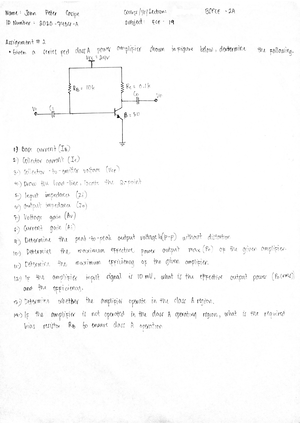 Name: John Peter
Course/Yr/Section: BSECE - 2A
ID Number:
Subject: ECE - 19
Assignment # 2
• Given a series fed class A power amplifier shown in figure below. determine the following.
Vcc = 20V
RB =
Vi
C1
C2
1) Base current (IB)
2) Collector current (IC)
3) Collector-to-emitter voltage (VCE)
4) Draw the load-line, locate the Q-point
5) Input impedance (Zi)
6) Output impedance (Zo)
7) Voltage gain (AV)
8) Current gain (Ai)
9) Determine the peak-to-peak output voltage (p-p) without distortion
10) Determine the maximum effective power output max (Po) of the given amplifier.
11) Determine the maximum efficiency of the given amplifier.
12) If the amplifier input signal is 10 mV, what is the effective output power (Po(rms))
and the efficiency.
13) Determine whether the amplifier operate in the class A region.
14) If the amplifier is not operated in the class A operating region, what is the required
bias resistor RB to ensure class A operation